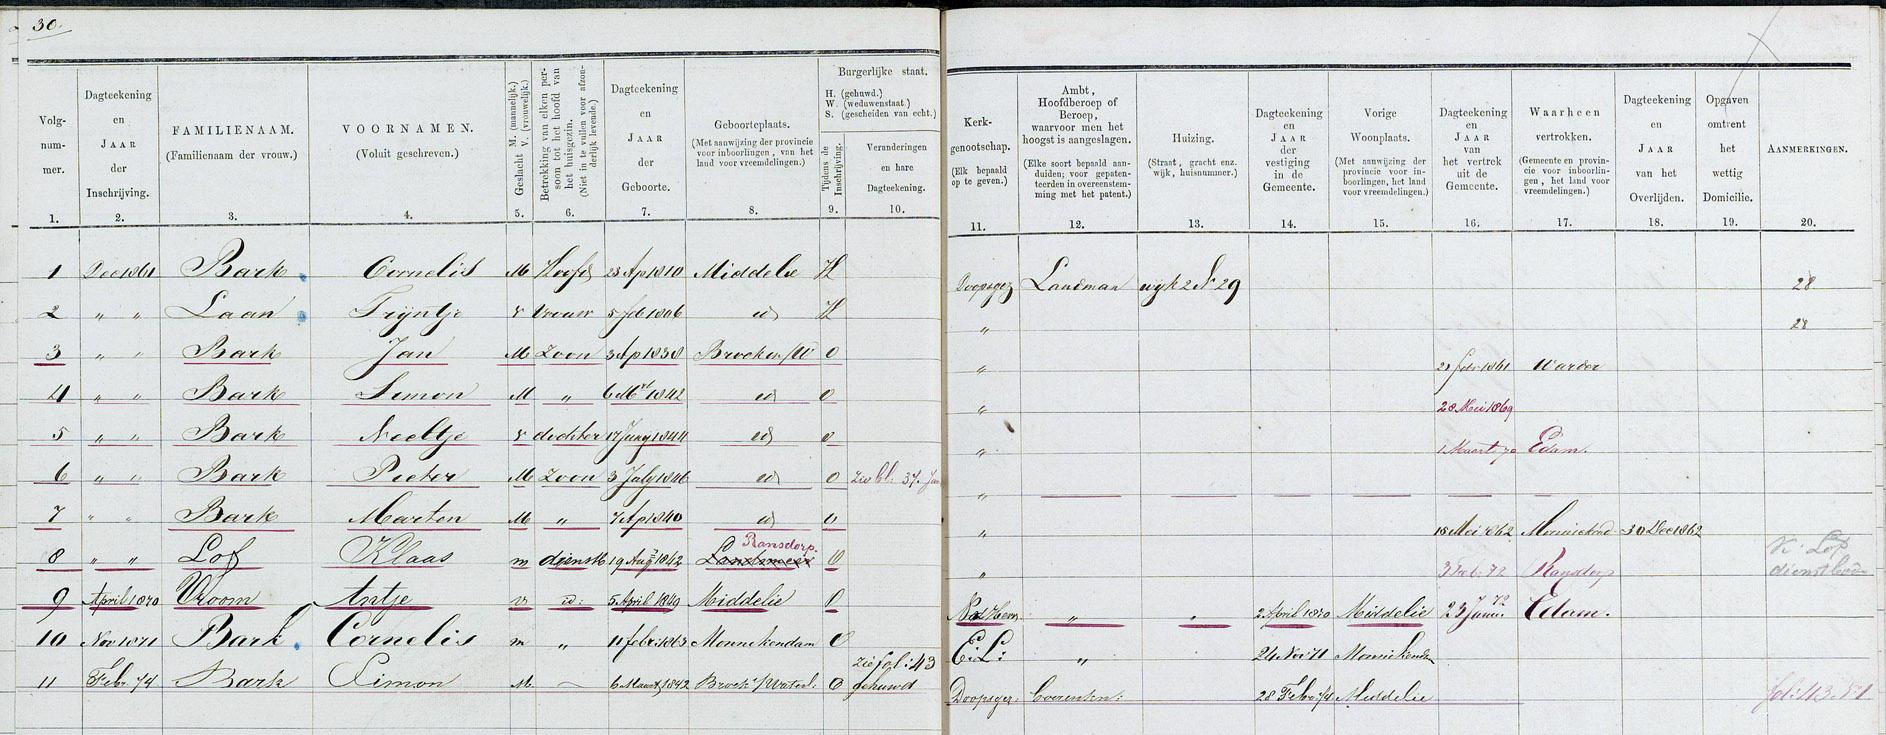 30.
Volg-
num-
mer.
1.
Dagteekening
en
JAAR
der
Inschrijving.
2.
FAMILIENAAM.
(Familienaam der vrouw.)
3.
VOORNAMEN.
(Voluit geschreven.)
4.
Geslacht M. (mannelijk.)
V. (vrouwelijk.)
5.
Betrekking van elken per-
soon tot het hoofd van
het huisgezin.
(Niet in te vullen voor afzon-
derlijk levende.)
6.
Dagteekening
en
JAAR
der
Geboorte.
7.
Geboorteplaats.
(Met aanwijzing der provincie
voor inboorlingen, van het
land voor vreemdelingen.)
8.
Burgerlijke staat.
H. (gehuwd.)
W. (weduwenstaat.)
S. (gescheiden van echt.)
Tijdens de
Inschrijving.
9.
Veranderingen
en hare
Dagteekening.
10.
Kerk-
genootschap.
(Elk bepaald
op te geven.)
11.
Ambt,
Hoofdberoep of
Beroep,
waarvoor men het
hoogst is aangeslagen.
(Elke soort bepaald aan-
duiden; voor gepaten-
teerden in overeenstem-
ming met het patent.)
12.
Huizing.
(Straat, gracht enz.
wijk, huisnummer.)
13.
Dagteekening
en
JAAR
der
vestiging
in de
Gemeente.
14.
Vorige
Woonplaats.
(Met aanwijzing der
provincie voor in-
boorlingen, het land
voor vreemdelingen.)
15.
Dagteekening
en
JAAR
van
het vertrek
uit de
Gemeente.
16.
Waarheen
vertrokken.
(Gemeente en provin-
cie voor inboorlin-
gen, het land voor
vreemdelingen.)
17.
Dagteekening
en
JAAR
van het
Overlijden.
18.
Opgaven
omtrent
het
wettig
Domicilie.
19.
AANMERKINGEN.
20.
1 Dec 1861 Bark Cornelis M Hoofd 23 Ap 1810 Middelie H Doopsgez Landman wijk 2 N 29 28
2 " " Laan Trijntje V Vrouw 5 feb 1806 id H " 28
3 " " Bark Jan M Zoon 3 Ap 1838 Broek in/W O " febr 1861 Warder
4 " " Bark Simon M " 6 Mrt 1842 id O " 28 Mei 1869
5 " " Bark Neeltje V dochter 17 Juny 1844 id O " 1 Maart 70 Edam.
6 " " Bark Pieter M Zoon 3 July 1846 id O Zie bl: 37. "
7 " " Bark Marten M " 7 Ap 1840 id O " 18 Mei 1862 30 Dec 1862
8 " " Lof Klaas m dienstb 19 Aug 1842 Landsmeer Ransdorp. O " 3 Feb: 72 Ransdorp K: Lof dienstbode
9 April 1870 Vroom Antje v id: 5 April 1849 Middelie O Ned Herv. " " 2 April 1870 Middelie 23 Janu: 72 Edam.
10 Nov 1871 Bark Cornelis m " 11 febr: 1863 Monnikendam O E: L: " 24 Nov 71 Monnikendam
11 Febr. 74 Bark Simon M. 6 Maart 1842 Broek i/Waterl: O zie fol: 43 gehuwd Doopsgez. 28 Febr: 74 Middelie fol: 43